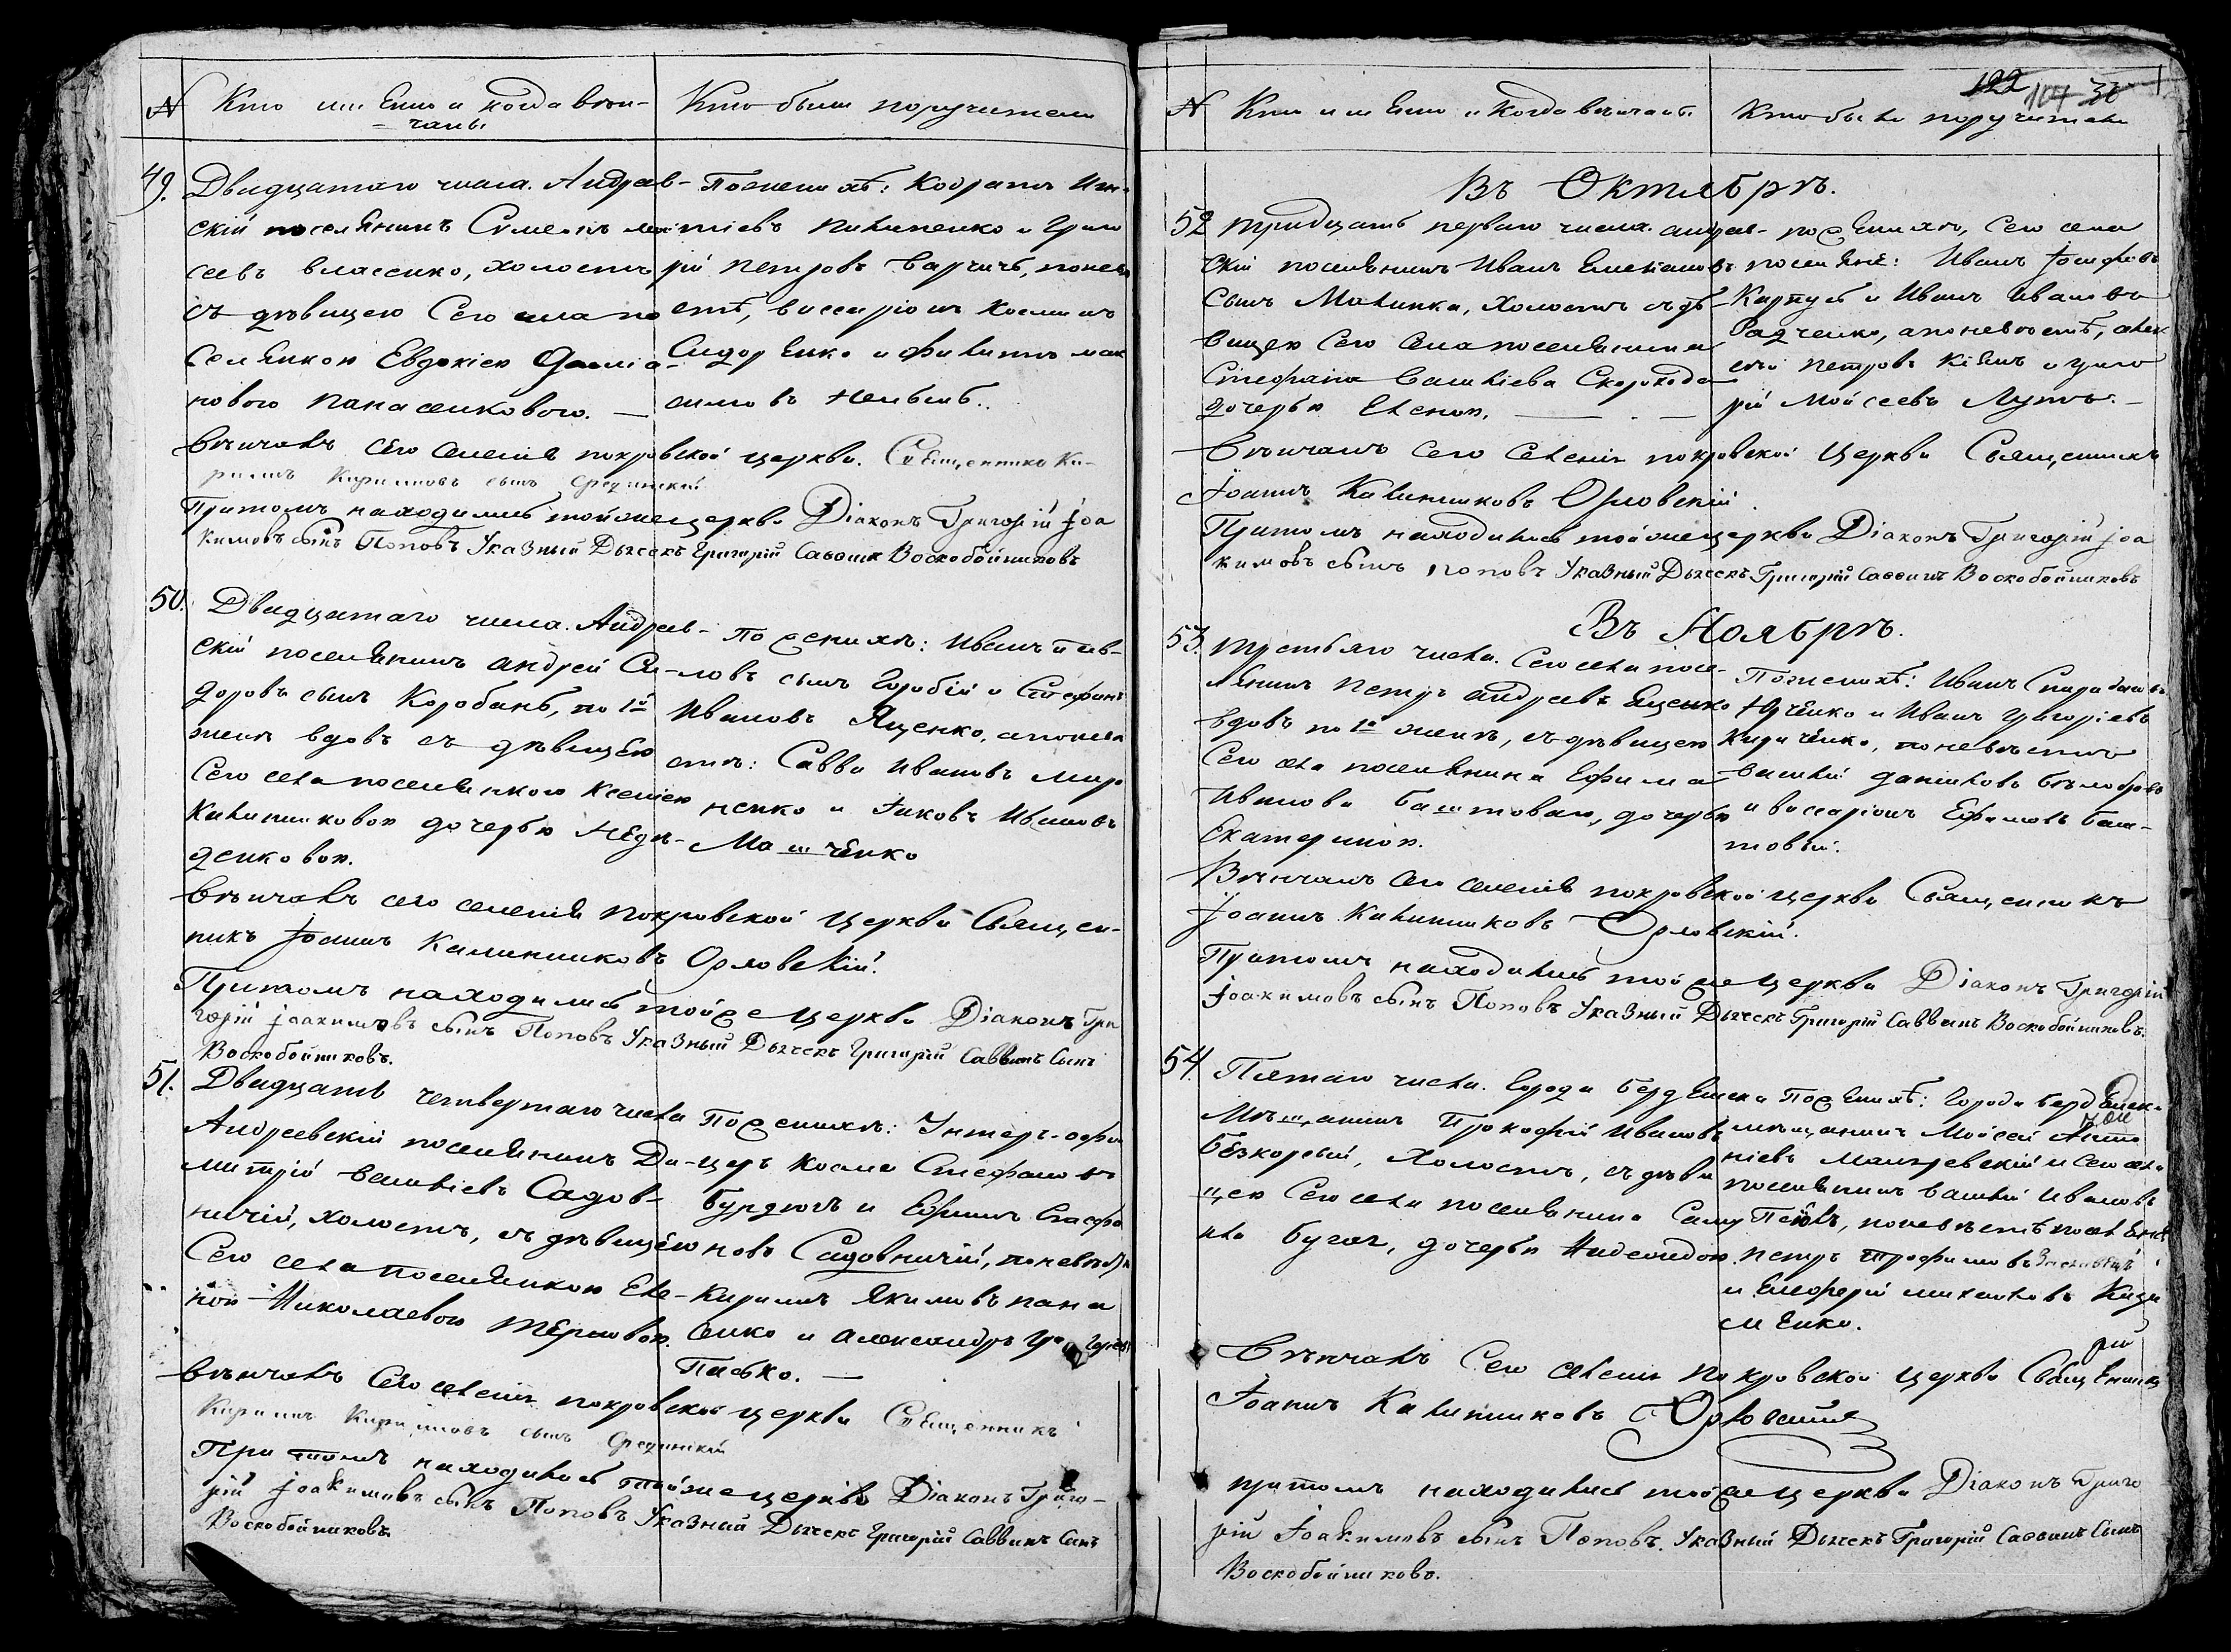 N Кто имянно и когда вѣн-
чаны
Кто были поручители
49. Двадцатаго числа. Андреев-
скій поселянинъ Сѵмеонъ Мои
сеевъ Власенко, холостъ
съ дѣвицею Сего села по
селянкою Евдокіею Даміа-
новою Панасенковою. —
По женихѣ: Кодратъ Иг-
натіевъ Пилипенко и Григо
рій Петровъ Варчичъ, по невѣ
стѣ, Виссаріонъ Космин
Сидоренко и Филиппъ Мак
симовъ
Вѣнчалъ сего селенія покровской церкви. Священникъ Ки-
риллъ Кирилловъ сынъ Срединскій
Притомъ находились той же церкви Діаконъ Григорій Іоа
кимовъ сынъ Поповъ Указный Дьячекъ Григорій Саввин Воскобойниковъ
50. Двадцатаго числа. Андреев-
скій поселянинъ Андрей Си-
доровъ сынъ Коробань, по 1й
женѣ вдовъ съ дѣвицею
Сего села поселянкою Ксеніею
Калинниковою дочерью Недѣ-
денковою.
По женихѣ: Иванъ Пав-
ловъ сынъ Горобій и Стефанъ
Ивановъ Яценко, а по невѣ
стѣ: Савва Ивановъ Миро
ненко и Яковъ Ивановъ
Мащенко
Вѣнчалъ сего селенія покровской церкви Священ-
никъ Іоаннъ Калинниковъ Орловскій.
Притомъ находились той же церкви Діаконъ Гри
горій Іоакимовъ сынъ Поповъ Указный Дьячекъ Григорій Саввинъ Сынъ
Воскобойниковъ.
51. Двадцать четвертаго числа
Андреевскій поселянинъ Ди-
митрій Васильевъ Садов-
ничій, холостъ, съ дѣвицею
Сего села поселянкою Еле-
ною Николаевою Терновою.
По женихѣ: Унтеръ-офи
церъ Косма Стефановъ
Бурдюгъ и Ефимъ Стефа
новъ Садовничій, по невѣстѣ
Кириллъ Якимовъ Пана
сенко и Александръ Григорьевъ
Пасько. —
Вѣнчалъ Сего селенія покровской церкви Священникъ
Кириллъ Кирилловъ сынъ Срединскій
При томъ находились той же церкви Діаконъ Григо-
рій Іоакимовъ сынъ Поповъ Указный Дьячекъ Григорій Саввинъ Сынъ
Воскобойниковъ.
122 107 36
N Кто имянно и когда вѣнчаны
Кто были поручители
Въ Октябрѣ.
52 Тридцать перваго числа. Андреев-
скій поселянинъ Иванъ Емельяновъ
сынъ Малинка, холостъ съ дѣ-
вицею Сего села поселянина
Стефана Васильева Скорохода
дочерью Еленою. —
по женихѣ, Сего села
поселяне: Иванъ Іосифовъ
Карпусь и Иванъ Ивановъ
Радченко, а по невѣстѣ, Алек
сѣй Петровъ Кіямъ и Григо
рій Мойсеевъ Лутъ. —
Вѣнчалъ Сего Селенія покровской Церкви Священникъ
Іоаннъ Калинниковъ Орловскій.
Притомъ находились той же церкви Діаконъ Григорій Іоа
кимовъ сынъ Поповъ Указный Дьячекъ Григорій Саввинъ Воскобойниковъ
Въ Ноябрѣ.
53. Третьяго числа. Сего села посе-
лянинъ Петръ Андреевъ Яценко
вдовъ по 1й женѣ, съ дѣвицею
Сего села поселянина Ефима
Иванова Баштоваго, дочерью
Екатериною.
По женихѣ: Иванъ Спиридоновъ
Юрченко и Иванъ Григоріевъ
Кириченко, по невѣстѣ
Василій Даниловъ Бѣлобровъ
и Виссаріонъ Ефимовъ Баш-
товый.
Вѣнчалъ Сего селенія покровской церкви Священникъ
Іоаннъ Калинниковъ Орловскій.
Притомъ находились той же Церкви Діаконъ Григорій
Іоакимовъ сынъ Поповъ Указный Дьячекъ Григорій Саввинъ Воскобойниковъ.
54. Пятаго числа. Города Бердянска
Мѣщанинъ Прокофій Ивановъ
Безкорсый, холостъ, съ дѣви
цею Сего села поселянина Саму
ила Бугая, дочерью
По женихѣ: Города Бердянска
мѣщанинъ Мойсей
ніевъ и Сего села
поселянинъ Василій Ивановъ
по невѣстѣ поселяне
Петръ Трофимовъ
и Елеферій Михайловъ Кузь
менко.
Вѣнчалъ Сего селенія покровской церкви Священникъ
Іоаннъ Калинниковъ Орловскій
притомъ находились той же церкви Діаконъ Григо
рій Іоакимовъ сынъ Поповъ. Указный Дьячекъ Григорій Саввинъ Сынъ
Воскобойниковъ.